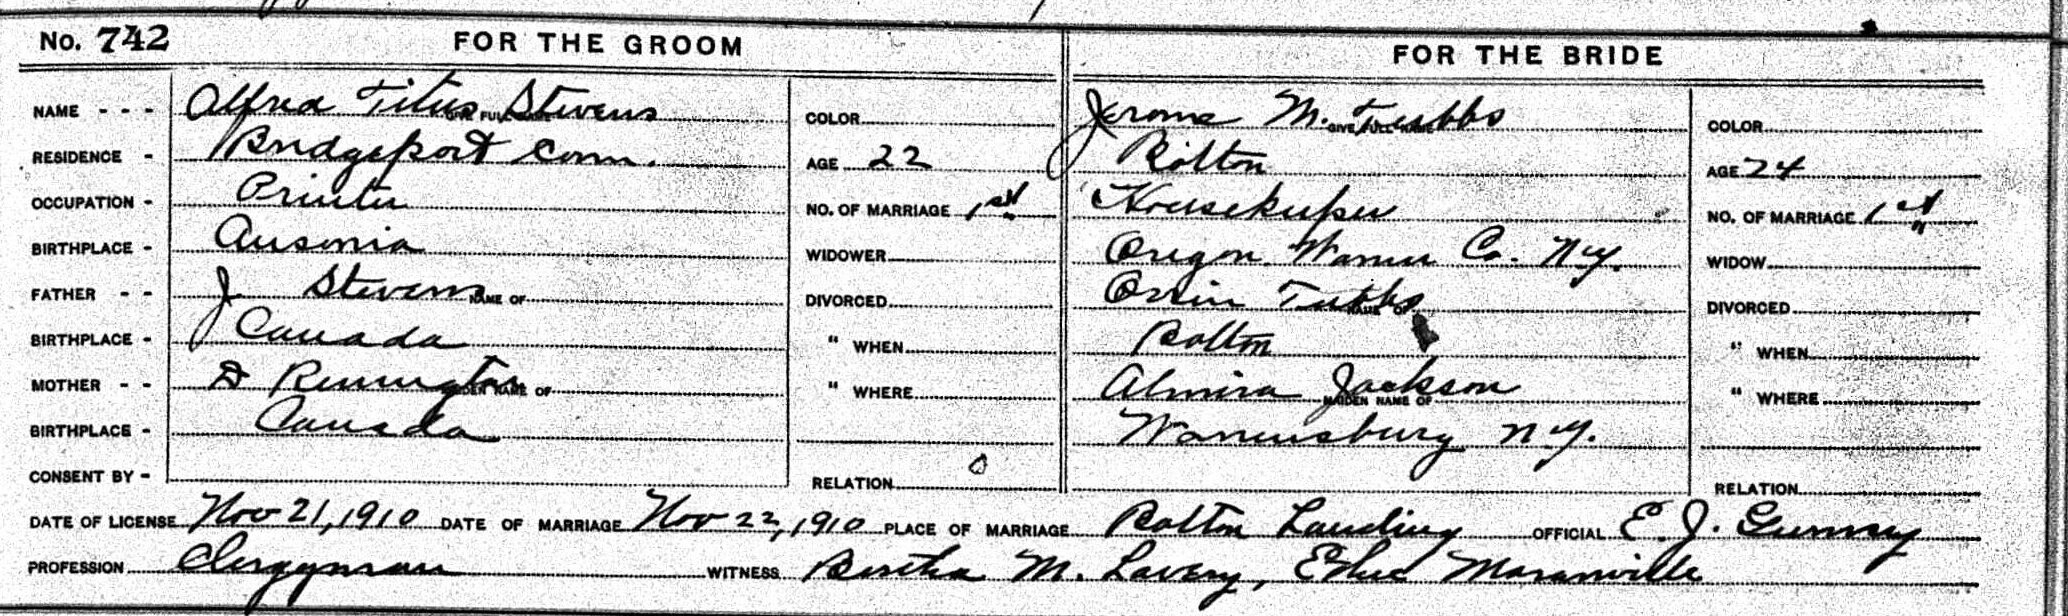 No. 742 FOR THE GROOM FOR THE BRIDE
NAME - - - Alfred Titus Stevens GIVE FULL NAME COLOR Jerome M. Tubbs GIVE FULL NAME COLOR
RESIDENCE - Bridgeport Conn. AGE 22 Bolton AGE 24
OCCUPATION - Printer NO. OF MARRIAGE 1st Housekeeper NO. OF MARRIAGE 1st
BIRTHPLACE - Ansonia WIDOWER Oregon Warren Co. N.Y. WIDOW
FATHER - - J Stevens NAME OF DIVORCED Orrin Tubbs NAME OF DIVORCED
BIRTHPLACE - Canada " WHEN Bolton " WHEN
MOTHER - - D Remington MAIDEN NAME OF " WHERE Almira Jackson MAIDEN NAME OF " WHERE
BIRTHPLACE - Canada Warrensburg N.Y.
CONSENT BY - RELATION 0 RELATION
DATE OF LICENSE Nov 21, 1910 DATE OF MARRIAGE Nov 22, 1910 PLACE OF MARRIAGE Bolton Landing OFFICIAL E. J. Gurney
PROFESSION Clergyman WITNESS Bertha M. Lavery, Ethel Maranville